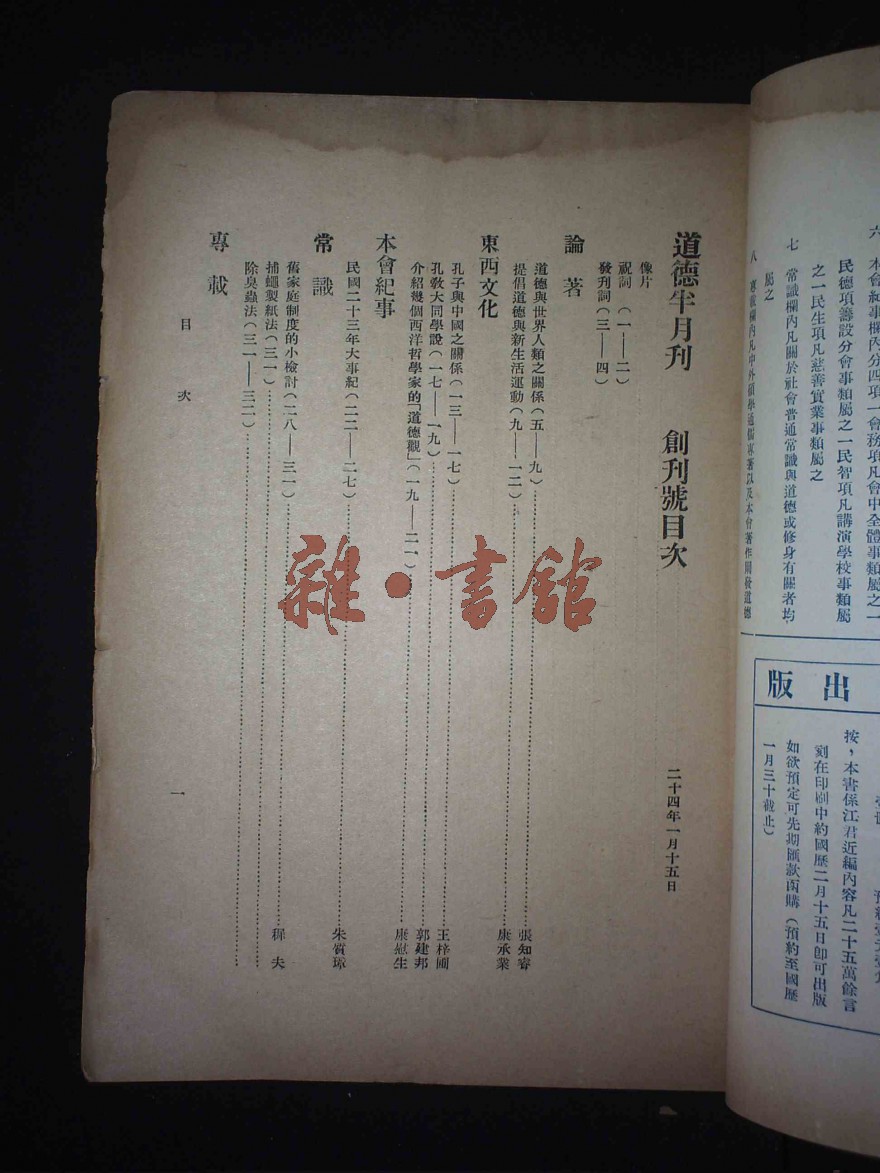 六 本會紀事欄內分四項一會務項凡會中全體事類屬之一
民德項籌設分會事類屬之一民智項凡講演學校事類屬
之一民生項凡慈善實業事類屬之
七 常識欄內凡關於社會普通常識與道德或修身有關者均
屬之
八 專載欄內凡中外碩學通儒專著以及本會著作闡發道德
出版
按,本書係江君近編內容凡二十五萬餘言
刻在印刷中約國歷二月十五日卽可出版
如欲預定可先期匯款函購(預約至國歷
一月三十截止)
道德半月刊 創刊號目次 二十四年一月十五日
像片
祝詞(一——二)
發刊詞(三——四)
論著
道德與世界人類之關係(五——九) 張知睿
提倡道德與新生活運動(九——一二) 康承業
東西文化
孔子與中國之關係(一三——一七) 王梓圃
孔敎大同學說(一七——一九) 郭建邦
介紹幾個西洋哲學家的「道德觀」(一九——二一) 康慰生
本會紀事
民國二十三年大事紀(二二——二七) 朱賓琼
常識
舊家庭制度的小檢討(二八——三一) 穉夫
捕蠅製紙法(三一)
除臭蟲法(三一——三二)
專載
目次
一
雜·書館